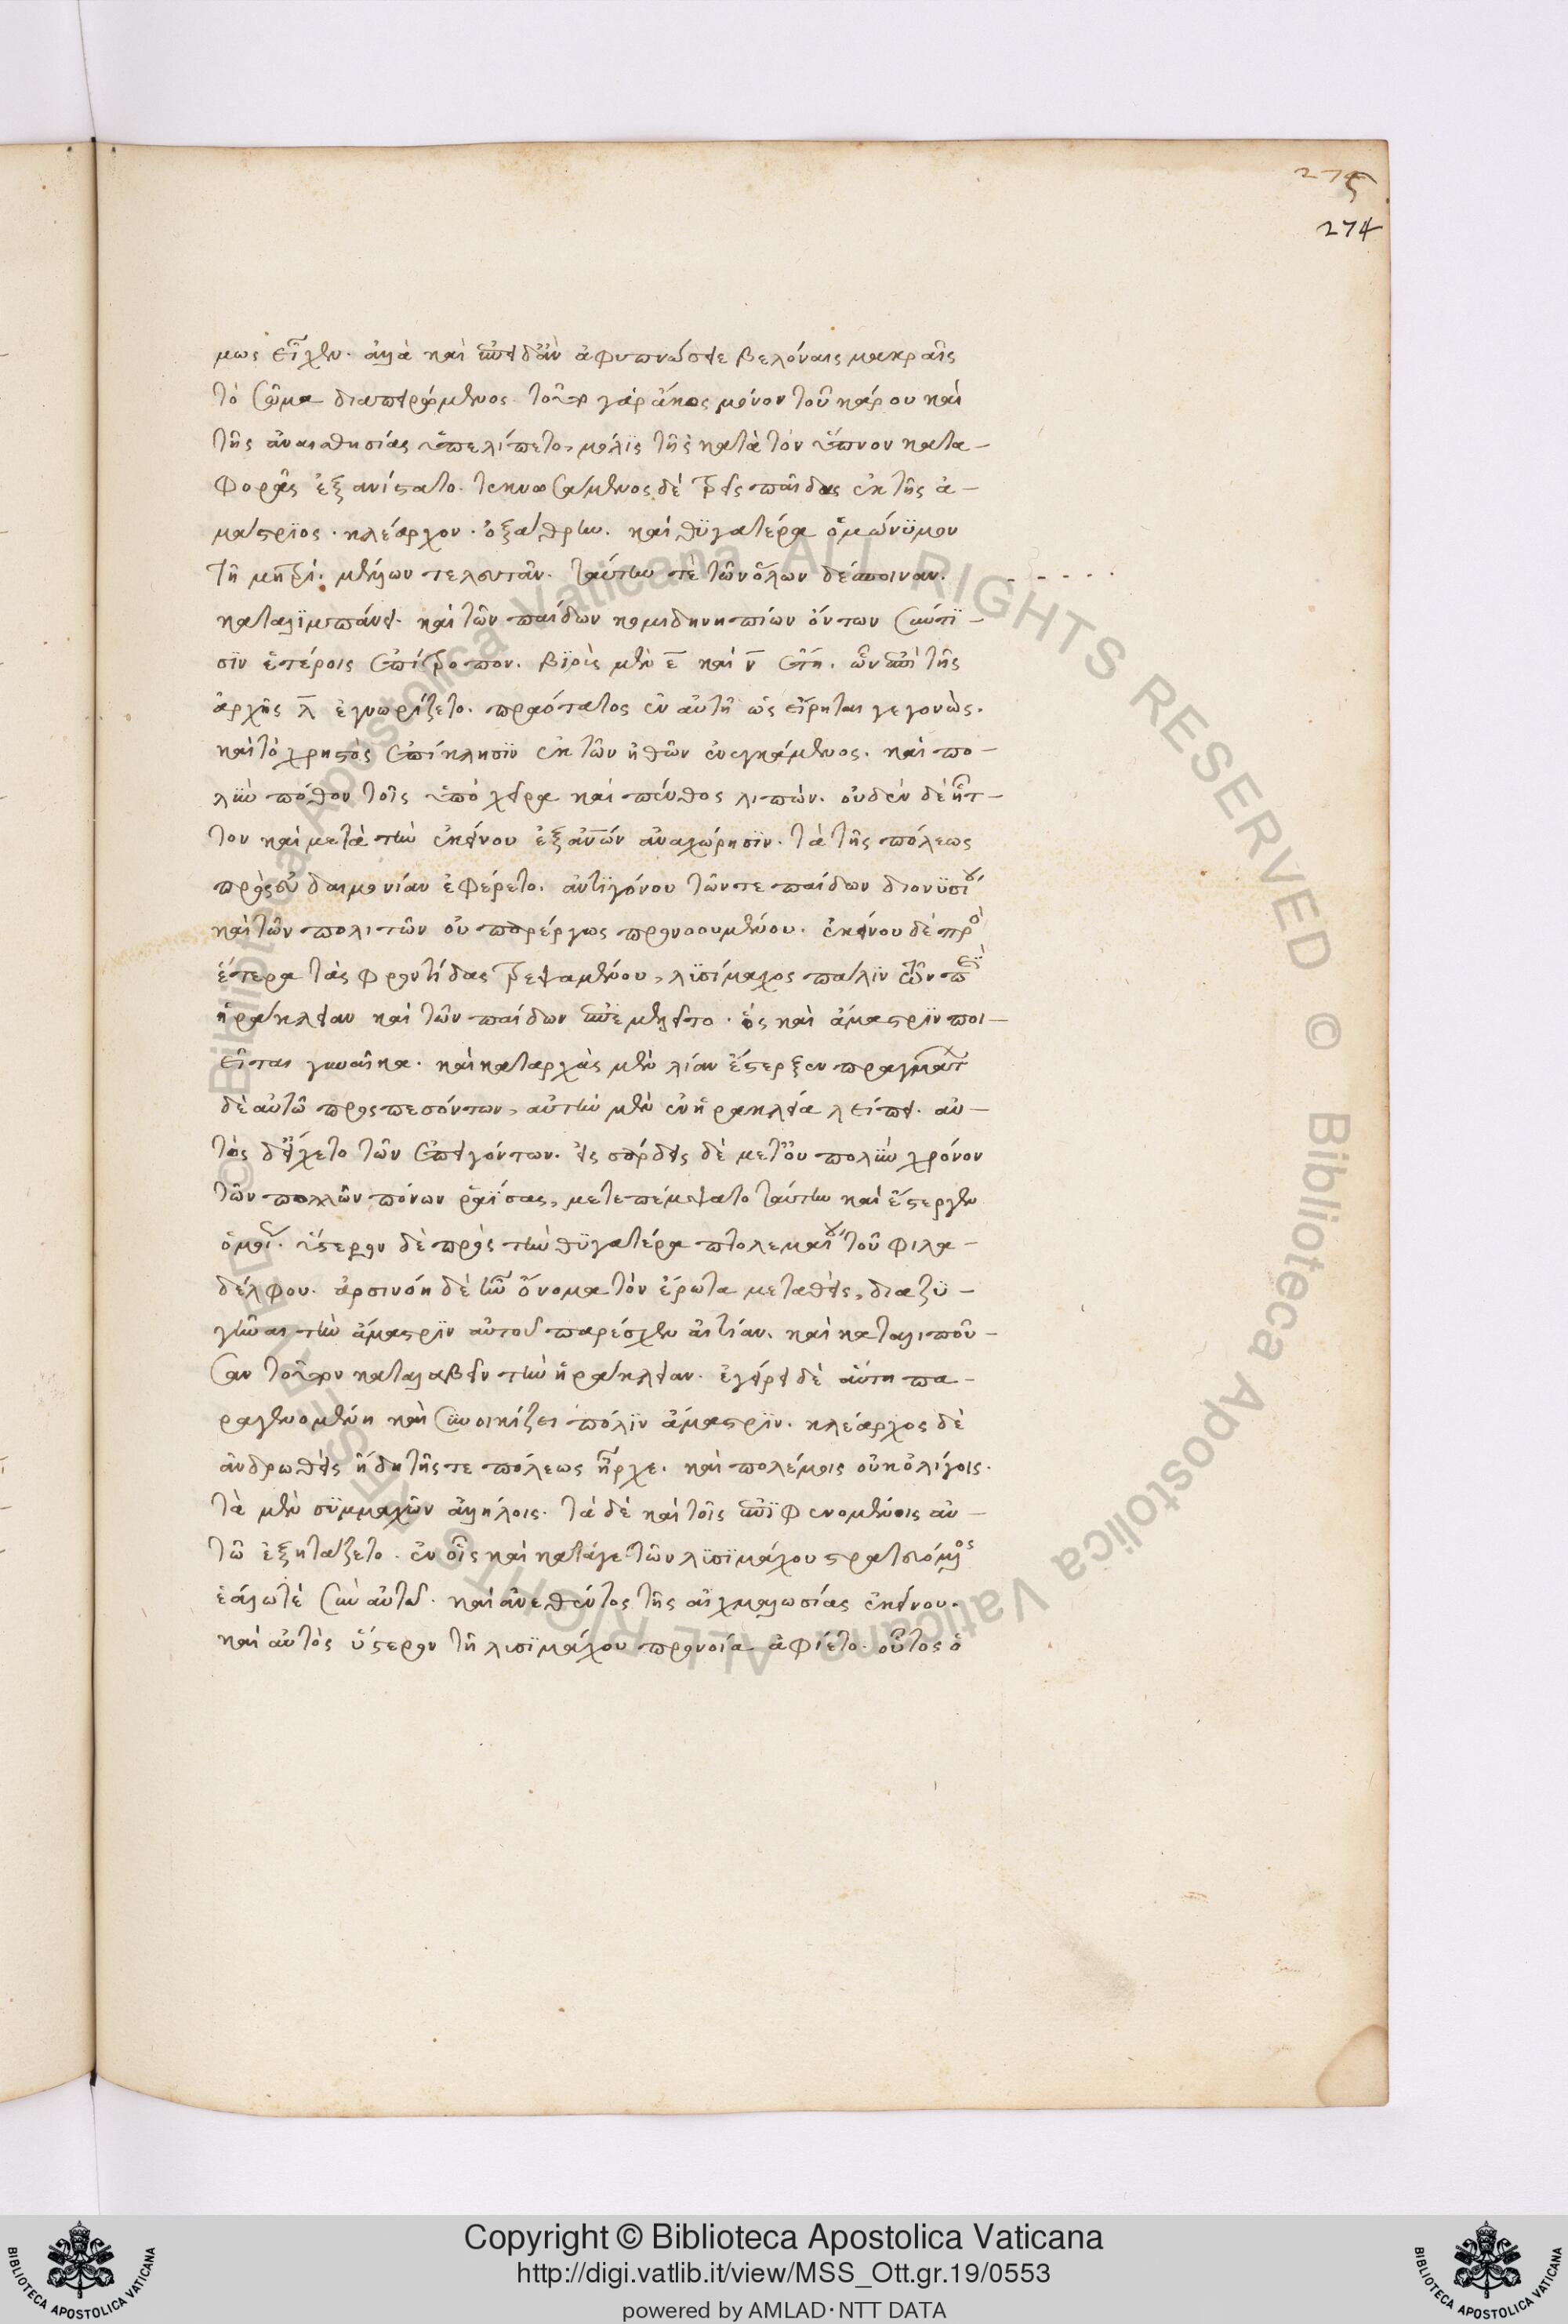 275
274
μως εἶχεν. ἀλλὰ καὶ ἐπειδὰν ἀφυπνώσειε βελόναις μακραῖς
τὸ σῶμα διαπειρόμενος. τοῦτο γὰρ ἄκος μόνον τοῦ κάρου καὶ
τῆς ἀναισθησίας ὑπελίπετο, μόλϊς τῆς κατὰ τὸν ὕπνον κατα-
φορᾶς ἐξανίστατο. τεκνωσάμενος δὲ τρεῖς παῖδας ἐκ τῆς ἀ-
μάστρϊος. κλέαρχον. ὀξάθρην. καὶ θϋγατέρα ὁμώνϋμον
τῆ μητρί. μέλλων τελευτᾶν. ταύτην τὲ τῶν ὅλων δέσποιναν.
καταλϊμπάνει. καὶ τῶν παίδων κομιδῆ νηπίων ὄντων σὺν τϊ-
σϊν ἑτέροις ἐπίτροπον. βϊοὺς μὲν ε καὶ ν ἔτη. ὧν ἐπὶ τῆς
ἀρχῆς λ ἐγνωρίζετο. πραότατος ἐν αὐτῆ ὡς εἴρηται γεγονὼς.
καὶ τὸ χρηστὸς ἐπίκλησϊν ἐκ τῶν ἠθῶν ἐνεγκάμενος. καὶ πο-
λϋν πόθον τοῖς ὑπὸ χεῖρα καὶ πένθος λιπών. οὐδὲν δὲ ἧτ-
τον καὶ μετὰ τὴν ἐκείνου ἐξ ἀνῶν ἀναχώρησϊν. τὰ τῆς πόλεως
πρὸς εὐδαιμονίαν ἐφέρετο. ἀντϊγόνου τῶν τε παίδων διονϋσίου
καὶ τῶν πολιτῶν οὐ παρέργως προνοουμένου. ἐκείνου δὲ πρὸ
ἕτερα τὰς φροντίδας τρεψαμένου, λϋσίμαχος πάλϊν τῶν πε
ἡράκλειαν καὶ τῶν παίδων ἐπεμελεῖτο. ὃς καὶ ἄμαστρϊν ποι-
εῖται γυναῖκα. καὶ καταρχὰς μὲν λίαν ἔστερξεν πραγμάτ
δὲ αὐτῶ προςπεσόντων, αὐτὴν μὲν ἐν ἡρακλεία λείπει. αὐ-
τὸς δ' εἴχετο τῶν ἐπειγόντων. εἰς σάρδεις δὲ μετ' οὐ πολϋν χρόνον
τῶν πολλῶν πόνων ῥαΐσας, μετεπέμψατο ταύτην καὶ ἔστεργεν
ὁμοί. ὕστερον δὲ πρὸς τὴν θϋγατέρα πτολεμαίου τοῦ φιλα-
δέλφου. ἀρσινόη δὲ ἦν ὄνομα τὸν ἔρωτα μεταθεὶς, διαζϋ-
γῆναι τὴν ἄμαστρϊν αὐτοῦ παρέσχεν αἰτίαν. καὶ καταλιποῦ-
σαν τοῦτον καταλαβεῖν τὴν ἡράκλειαν. ἐγείρει δὲ αὕτη πα-
ραγενομένη καὶ σϋνοικίζει πόλϊν ἄμαστρϊν. κλέαρχος δὲ
ἀνδρωθεὶς ἤδη τῆς τε πόλεως ἦρχε. καὶ πολέμοις οὐκ ὀλίγοις.
τὰ μὲν σϋμμαχῶν ἄλλήλοις. τὰ δὲ καὶ τοῖς ἐπϊφενομένοις αὐ-
τῶ ἐξητάζετο. ἐν οἷς καὶ κατὰ γετῶν λϋσϊμάχου στρατευόμενος
ἑάλω τὲ σὺν αὐτῶ. καὶ ἀνεθέντος τῆς αἰχμαλωσίας ἐκείνου.
καὶ αὐτὸς ὕστερον τῆ λυσϊμάχου προνοία ἀφίετο. οὗτος ὁ
© Biblioteca Apostolica Vaticana ALL RIGHTS RESERVED © Biblioteca Apostolica Vaticana ALL RIGHTS RESERVED
BIBLIOTECA APOSTOLICA VATICANA
Copyright © Biblioteca Apostolica Vaticana
http://digi.vatlib.it/view/MSS_Ott.gr.19/0553
powered by AMLAD・NTT DATA
BIBLIOTECA APOSTOLICA VATICANA